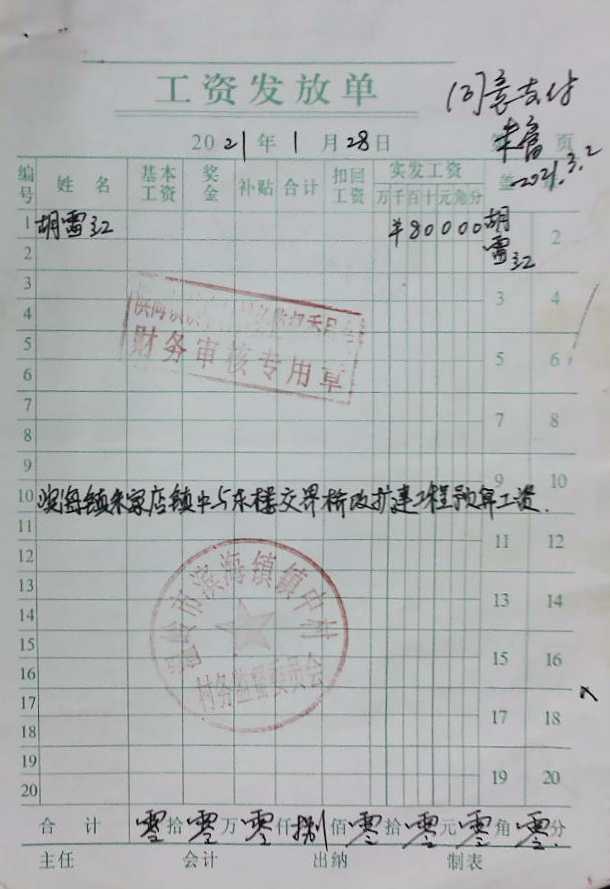 工资发放单
同意支付
2021年1月28日
页
2021.3.2
编号 姓名 基本工资 奖金 补贴 合计 扣回工资 实发工资 盖
万千百十元角分
1 胡雪江 ¥80000 胡雪江
2 2
3 3 4
4
5 5 6
6
7 7 8
8
9 9 10
10 滨海镇朱家店镇中与东楼交界桥改扩建工程预算工资.
11 11 12
12
13 13 14
14
15 15 16
16
17 17 18
18
19 19 20
20
财务审核专用章
温岭市滨海镇镇中村
村务监督委员会
合计 零拾零万零仟捌佰零拾零元零角零分
主任 会计 出纳 制表